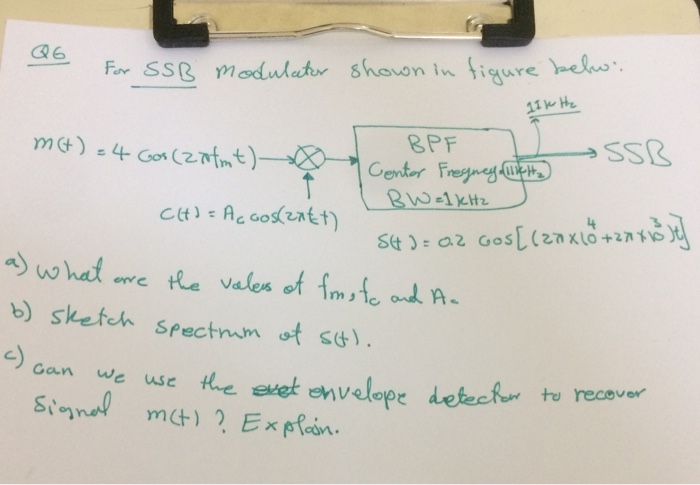 Q6
For SSB modulator shown in figure below:
11 kHz
m(t) = 4 cos(2πfmt)
BPF
Center Freqney 11kHz
BW=1kHz
SSB
C(t) = Ac cos(2πfct)
S(t) = 0.2 cos[(2π×10^4+2π×10^3)t]
a) what are the values of fm, fc and Ac
b) sketch spectrum of s(t).
c) can we use the envelope detector to recover
Signal m(t)? Explain.